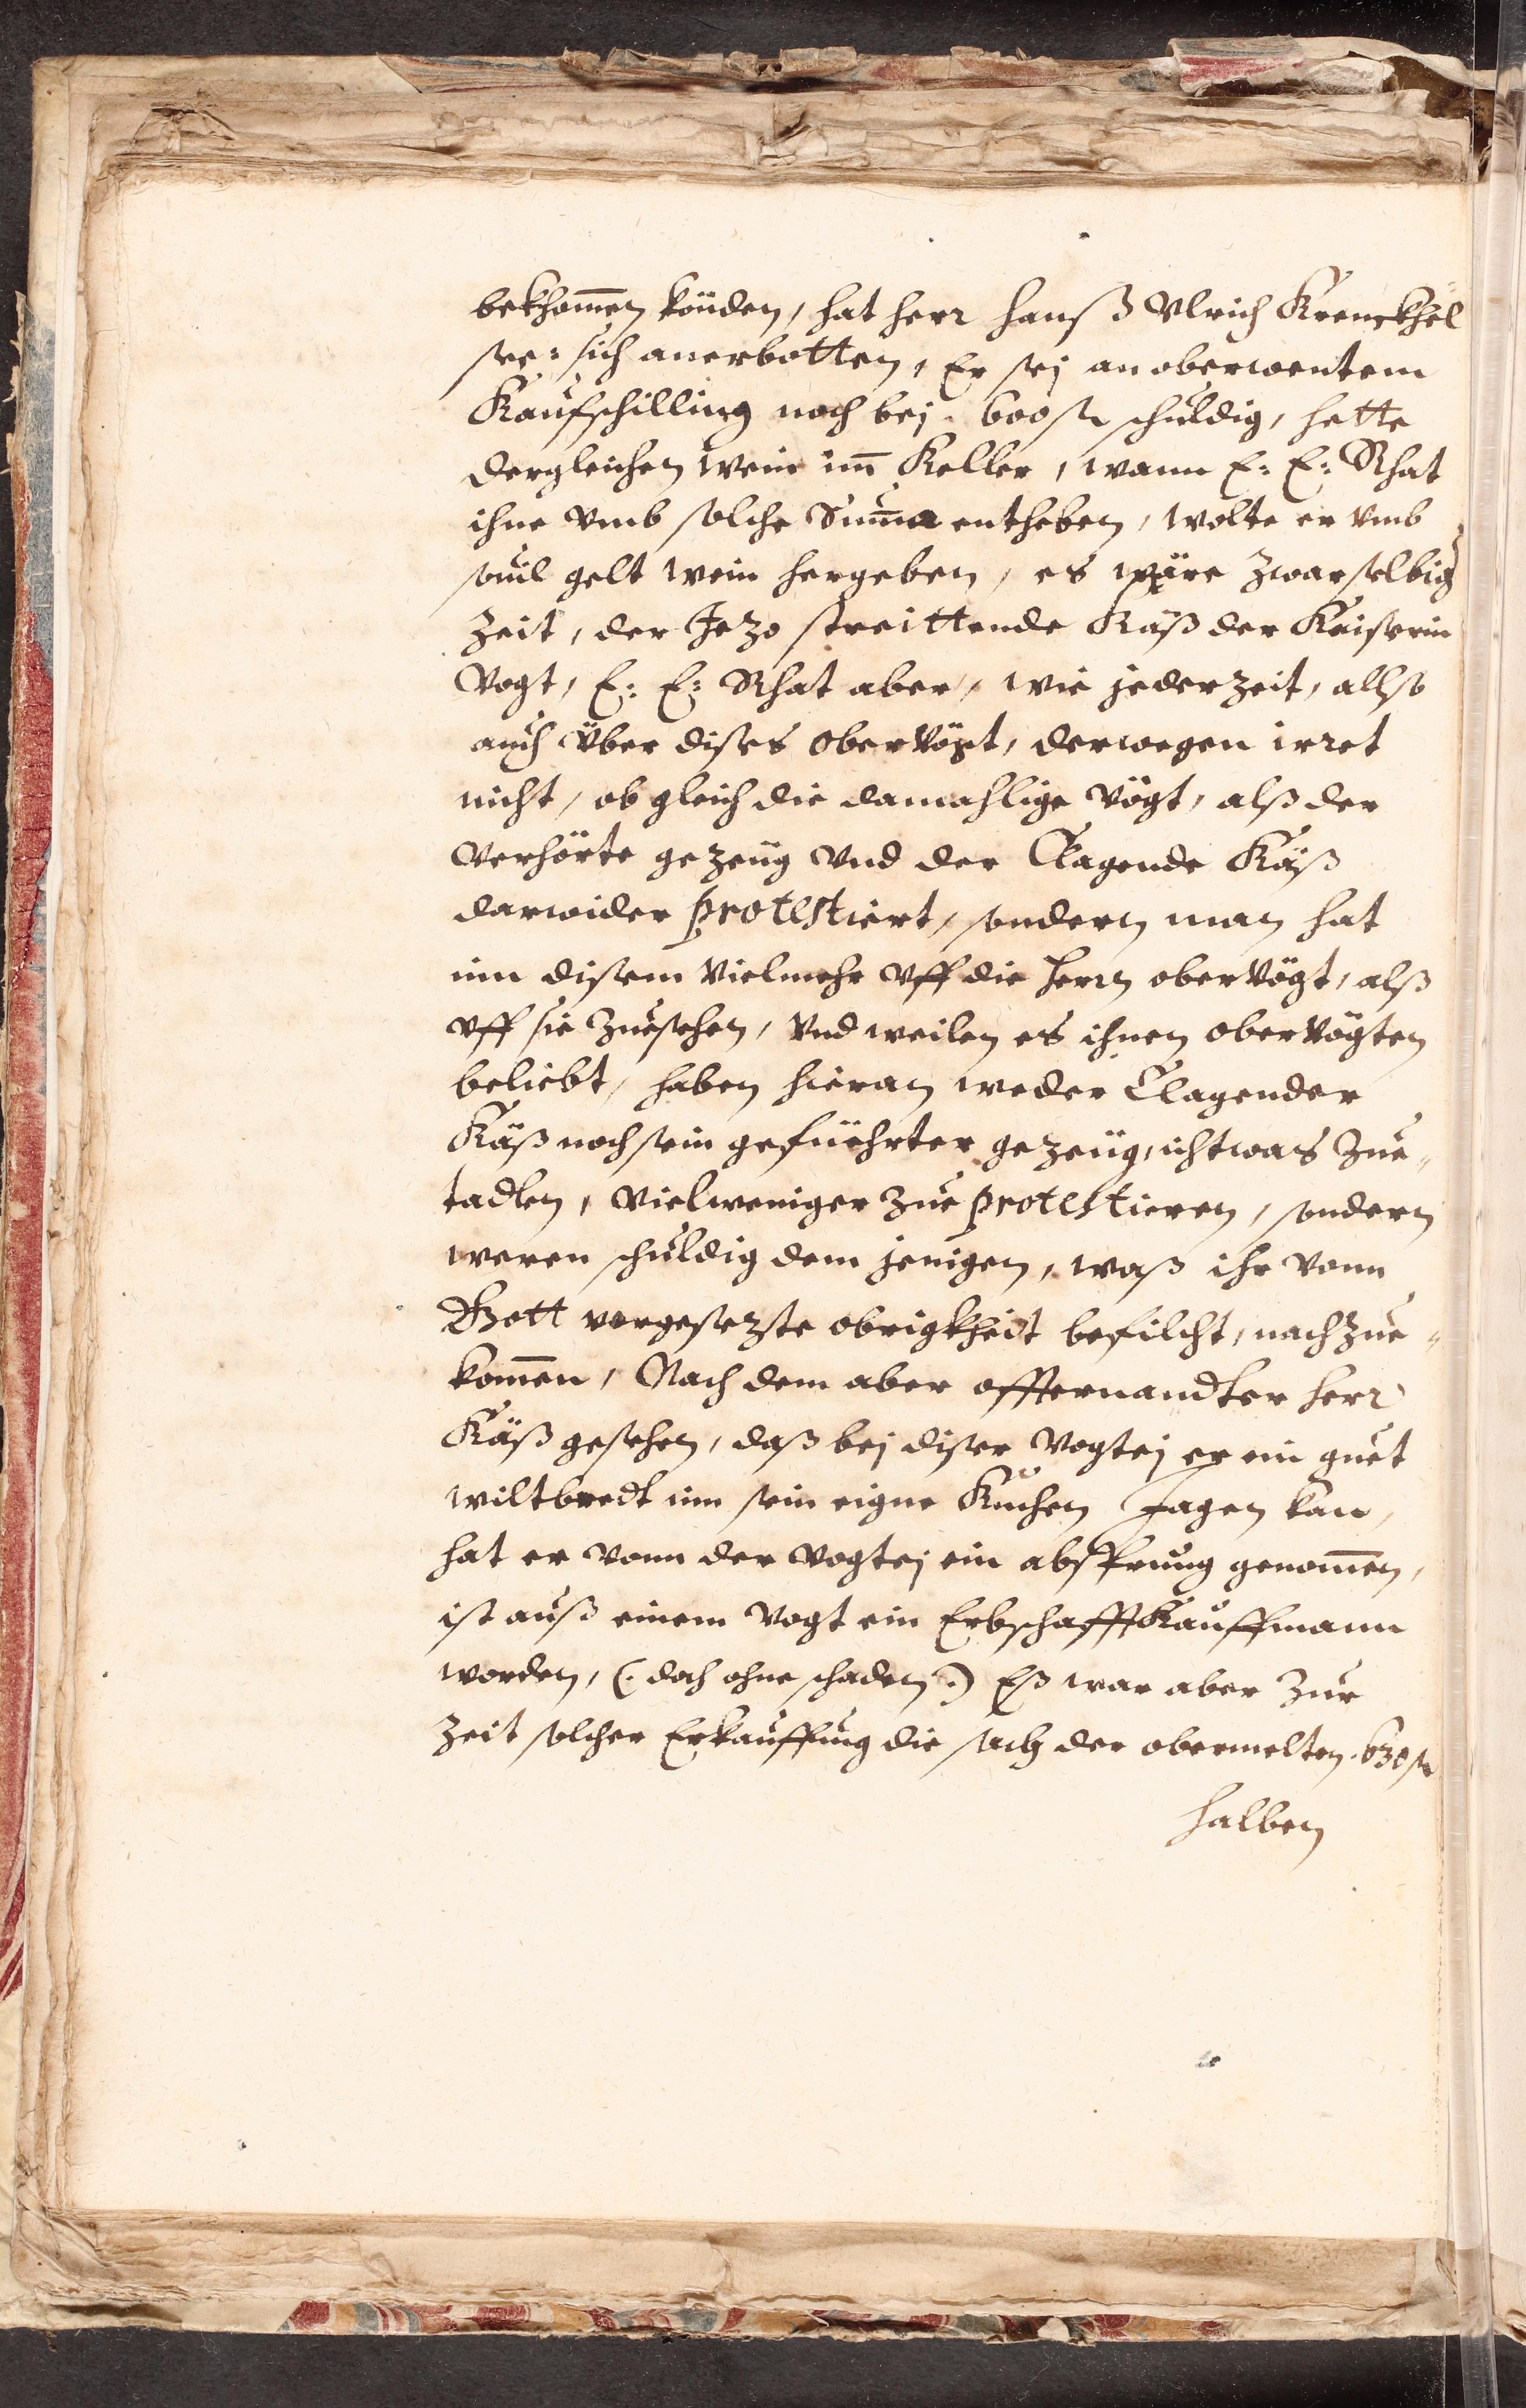 bekhom̅en könden, hat herr Hanß Vlrich Krenckhel
see: sich anerbotten, Er sej an oberwentem
Kaufschilling noch bej. 600 fl schuldig, hette
dergleichen wein im̅ Keller, wann E: E: Rhat
ihne vmb solche Sum̅a entheben, wolte er vmb
souil gelt wein hergeben, es wäre zwar selbig
Zeit, der Jezo streittende Käß der Keiserin
Vogt, E: E: Rhat aber, wie jederzeit, allso
auch über dises oberVögt, derwegen irret
nicht, ob gleich die damahlige Vögt, alß der
Verhörte gezeüg vnd der Clagende Käß
darwider protestiert, sondern man hat
inn disem Vielmehr vff die herrn oberVögt, alß
vff sie Zuesehen, Vnd weilen es ihnen oberVögten
beliebt, haben hieran weder Clagender
Käß noch sein gefüehrter gezeüg, ichtwas Zue„
tadlen, Vielweniger Zue protestieren, sondern
weren schuldig dem jenigen, waß ihr vonn
Gott vorgesezte obrigkheit befilcht, nachzue„
kom̅en, Nach dem aber offternandter herr
Käß gesehen, daß bej diser Vogtej er ein guet
wiltbredt inn sein eigne Kuchen Jagen kan,
hat er vonn der Vogtej ein absprung genom̅en,
ist auß einem Vogt ein Erbschafft Kauffmann
worden, (: doch ohne schaden :) Eß war aber Zur
Zeit solcher Erkauffung die sach der obermelten. 630 fl
halben